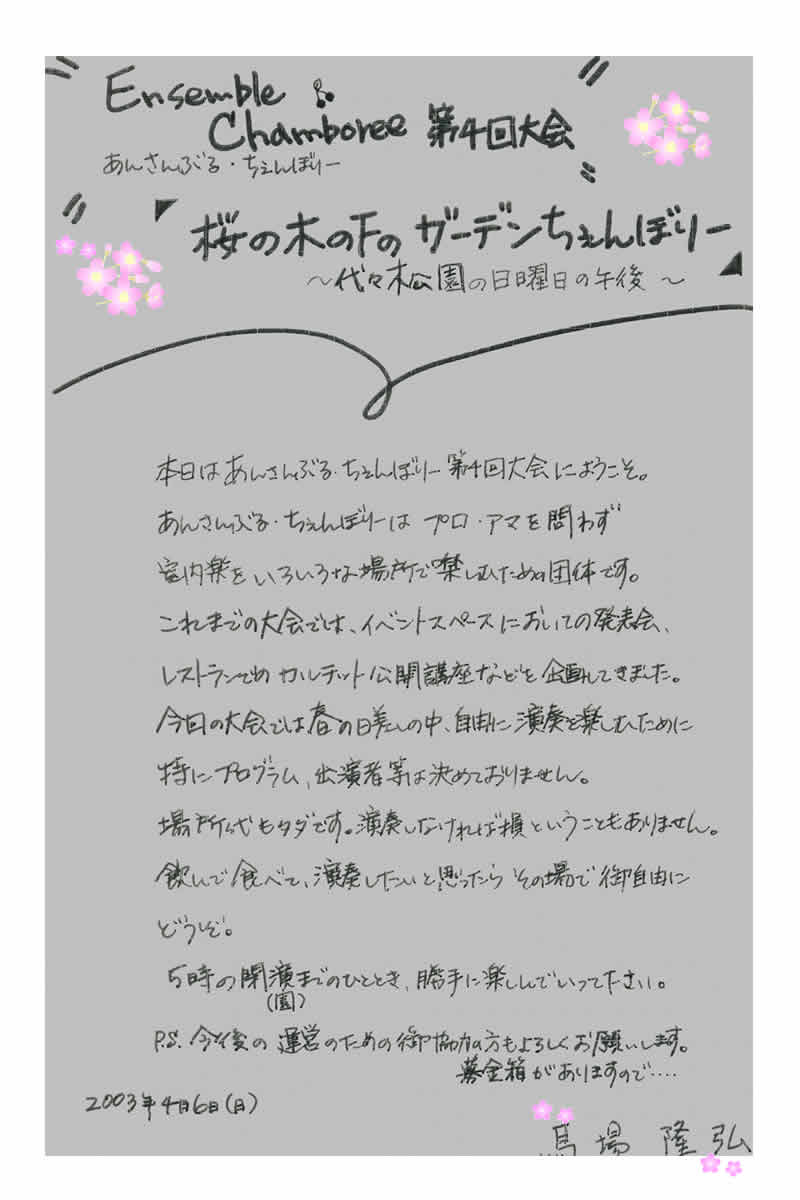 Ensemble
Chamboree 第4回大会
あんさんぶる・ちぇんぼりー
桜の木の下の ガーデンちぇんぼりー
～代々木公園の日曜日の午後～
本日はあんさんぶる・ちぇんぼりー第4回大会にようこそ。
あんさんぶる・ちぇんぼりーは プロ・アマを問わず
室内楽をいろいろな場所で楽しむための団体です。
これまでの大会では、イベントスペースにおいての発表会、
レストランでの カルテット公開講座などを企画してきました。
今回の大会では春の日差しの中、自由に演奏を楽しむために
特にプログラム、出演者等は決めておりません。
場所代もタダです。演奏しなければ損ということもありません。
飲んで食べて、演奏したいと思ったら その場で御自由に
どうぞ。
5時の閉演までのひととき、勝手に楽しんでいって下さい。
(園)
P.S. 今後の運営のための御協力の方もよろしくお願いします。
募金箱がありますので‥‥
2003年4月6日(日)
馬場 隆弘